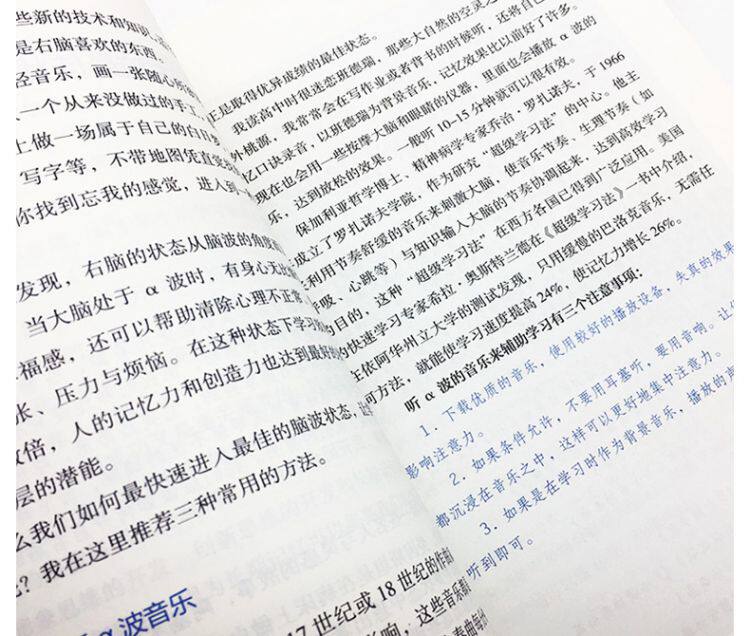 些新的技术和知识
是右脑喜欢的东西
轻音乐，画一张随心所
一个从来没做过的手工
上做一场属于自己的白日梦
写字等，不带地图凭直觉
你找到忘我的感觉，进入到一
发现，右脑的状态从脑波的角度
当大脑处于 α 波时，有身心无比
福感，还可以帮助清除心理不正常
张、压力与烦恼。在这种状态下学习
数倍，人的记忆力和创造力也达到最好的
层的潜能。
么我们如何最快速进入最佳的脑波状态，达
？我在这里推荐三种常用的方法。
α 波音乐
17 世纪或 18 世纪的作
响，这些音乐
正是取得优异成绩的最佳状态。
我读高中时很迷恋班德瑞，那些大自然的空灵之
外桃源，我常常会在写作业或者背书的时候听，还将自己
忆口诀录音，以班德瑞为背景音乐，记忆效果比以前好了许多。
现在也会用一些按摩大脑和眼睛的仪器，里面也会播放 α 波的
乐，达到放松的效果。一般听 10~15 分钟就可以很有效。
保加利亚哲学博士、精神病学专家乔治·罗扎诺夫，于 1966
成立了罗扎诺夫学院，作为研究“超级学习法”的中心。他主
利用节奏舒缓的音乐来刺激大脑，使音乐节奏、生理节奏（如
吸、心跳等）与知识输入大脑的节奏协调起来，达到高效学习
的目的，这种“超级学习法”在西方各国已得到广泛应用。美国
的快速学习专家希拉·奥斯特兰德在《超级学习法》一书中介绍，
在依阿华州立大学的测试发现，只用缓慢的巴洛克音乐，无需任
何方法，就能使学习速度提高 24%，使记忆力增长 26%。
听 α 波的音乐来辅助学习有三个注意事项：
1. 下载优质的音乐，使用较好的播放设备，失真的效果
影响注意力。
2. 如果条件允许，不要用耳塞听，要用音响。让
都沉浸在音乐之中，这样可以更好地集中注意力。
3. 如果是在学习时作为背景音乐，播放的声
听到即可。